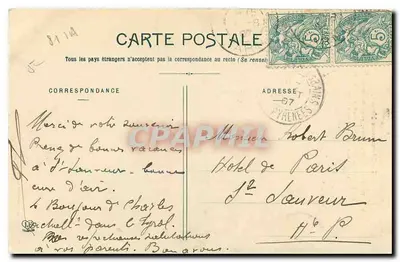 CARTE POSTALE
Tous les pays étrangers n'acceptent pas la correspondance au recto (Se renseigner
CORRESPONDANCE
ADRESSE
Merci de votre souvenir
de bonnes vacances
à St Sauveur bonne
cure d'air.
le Bonjour de Charles
dans le Tyrol.
respectueuses salutations
à vos parents.
Monsieur Robert Brun
Hotel de Paris
St Sauveur
Hte P.
PYRENEES
07
5
5
CPARAMA